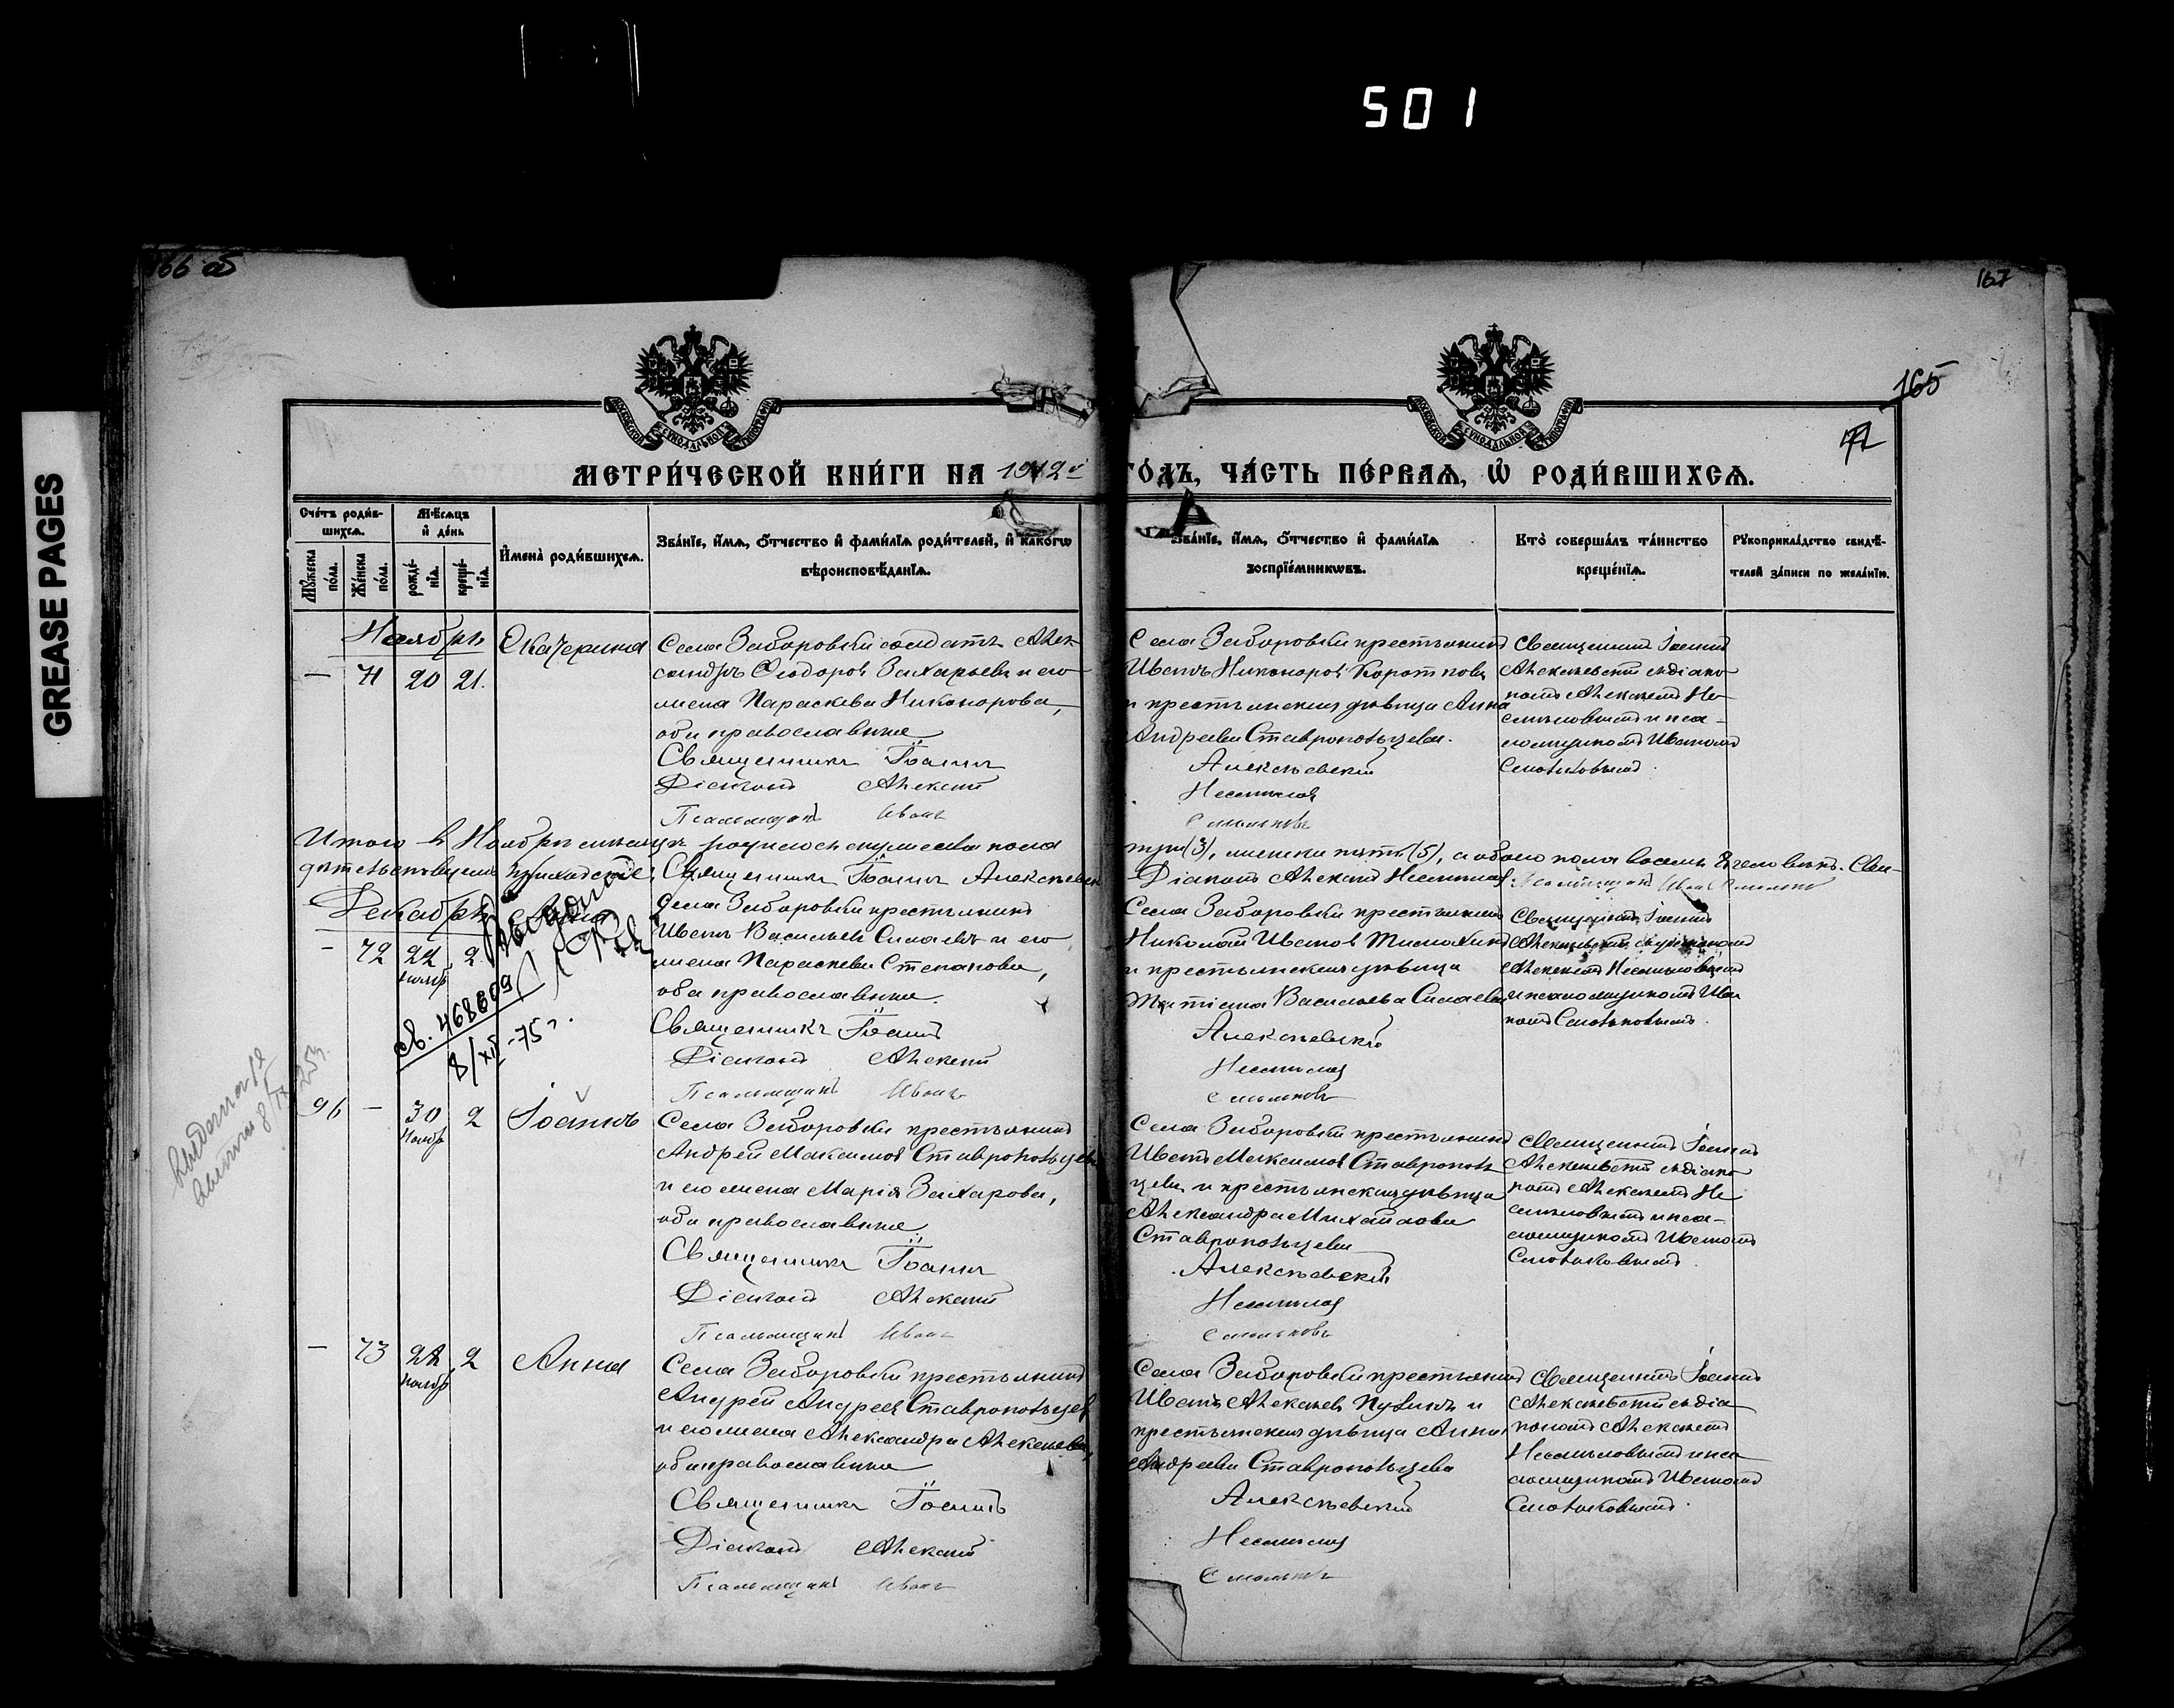 501
GREASE PAGES
166 об
167
165
МЕТРИ́ЧЕСКОЙ КНИ́ГИ НА 1912 й ГО́ДЪ, ЧА́СТЬ ПЕ́РВАѦ, Ѡ҆ РОДИ́ВШИХСѦ.
Сче́тъ роди́в-
шихсѧ.
Мꙋ́жеска по́ла.
Же́нска по́ла.
Мѣ́сѧцъ
и҆ де́нь
рожде́-
нїѧ.
креще́-
нїѧ.
И҆мена̀ роди́вшихсѧ.
Зва́нїе, и҆́мѧ, ѻ҆́тчество и҆ фами́лїѧ роди́телей, и҆ како́гѡ
вѣроисповѣ́данїѧ.
Зва́нїе, и҆́мѧ, ѻ҆́тчество и҆ фами́лїѧ
воспрїе́мникѡвъ.
Кто̀ соверша́лъ та́инство
креще́нїѧ.
Рꙋкоприкла́дство свидѣ́-
телей за́писи по жела́нїю.
Ноябрь
— 71 20 21.
Екатерина
Села Заборовки солдатъ Алек-
сандръ Ѳеодоровъ Захарьевъ и его
жена Параскева Никонорова,
оба православные
Священникъ Іоаннъ
Діаконъ Алексій
Псаломщикъ Иванъ
Села Заборовки крестьянинъ
Иванъ Никоноровъ Коротковъ
и крестьянская дѣвица Анна
Андреева Ставропольцева.
Алексѣевскій
Несмѣловъ
Смольковъ
Священникъ Іоаннъ
Алексѣевскій съ діако-
номъ Алексіемъ Не-
смѣловымъ и пса-
ломщикомъ Иваномъ
Смольковымъ.
Итого въ Ноябрѣ мѣсяцѣ родилось мужеска пола три (3), женска пять (5), а обоего пола восемь 8 человѣкъ. Сви-
дѣтельствуемъ Священникъ Іоаннъ Алексѣевскій Діаконъ Алексій Несмѣловъ. Псаломщикъ Иванъ Смольковъ
Декабрь
— 72 22 2
Ноябр
св. 468609
8/XII-75 г.
Села Заборовки крестьянинъ
Иванъ Васильевъ Силаевъ и его
жена Параскева Степанова,
оба православные.
Священникъ Іоаннъ
Діаконъ Алексій
Псаломщикъ Иванъ
Села Заборовки крестьянинъ
Николай Ивановъ Тимохинъ
и крестьянская дѣвица
Татіана Васильева Силаева
Алексѣевскій
Несмѣловъ
Смольковъ
Священникъ Іоаннъ
Алексѣевскій съ діакономъ
Алексіемъ Несмѣловымъ
и псаломщикомъ Ива-
номъ Смольковымъ.
96 — 30 2
Ноябр
Іоаннъ
Села Заборовки крестьянинъ
Андрей Максимовъ Ставропольцевъ
и его жена Марія Захарова,
оба православные
Священникъ Іоаннъ
Діаконъ Алексій
Псаломщикъ Иванъ
Села Заборовки крестьянинъ
Иванъ Максимовъ Ставрополь-
цевъ и крестьянская дѣвица
Александра Михайлова
Ставропольцева
Алексѣевскій
Несмѣловъ
Смольковъ
Священникъ Іоаннъ
Алексѣевскій съ діако-
номъ Алексіемъ Не-
смѣловымъ и пса-
ломщикомъ Иваномъ
Смольковымъ.
— 73 2
Ноябр
Анна
Села Заборовки крестьянинъ
Андрей Андреевъ Ставропольцевъ
и его жена Александра Алексѣева,
оба православные
Священникъ Іоаннъ
Діаконъ Алексій
Псаломщикъ Иванъ
Села Заборовки крестьянинъ
Иванъ Алексѣевъ и
крестьянская дѣвица Анна
Андреева Ставропольцева
Алексѣевскій
Несмѣловъ
Смольковъ
Священникъ Іоаннъ
Алексѣевскій съ діа-
кономъ Алексіемъ
Несмѣловымъ и пса-
ломщикомъ Иваномъ
Смольковымъ.